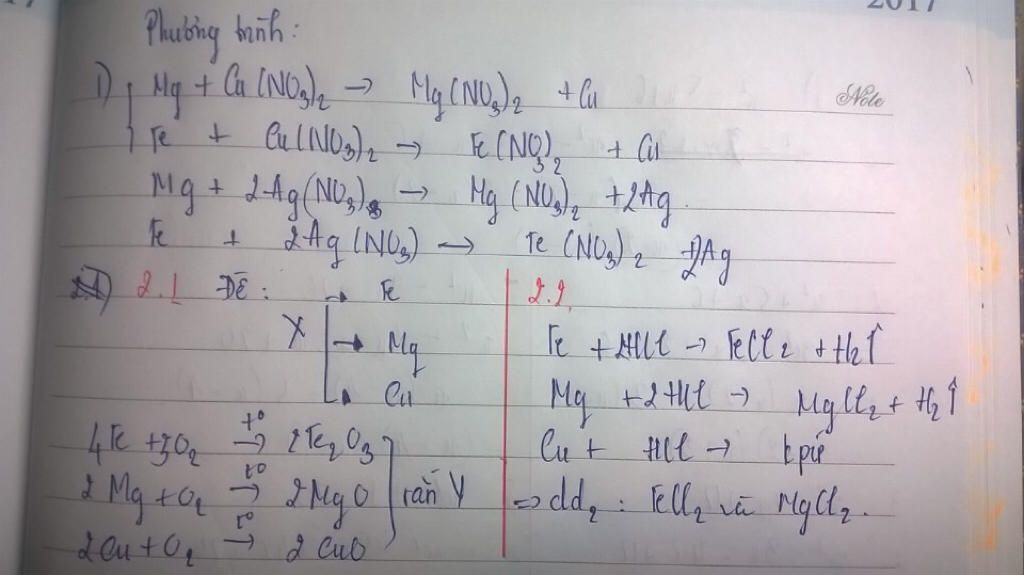 2017
Phương trình:
1) Mg + Cu(NO3)2 → Mg(NO3)2 + Cu
Note
Fe + Cu(NO3)2 → Fe(NO3)2 + Cu
Mg + 2Ag(NO3) → Mg(NO3)2 + 2Ag.
Fe + 2Ag(NO3) → Fe(NO3)2 + 2Ag
2.1 Đề:
X → Fe
→ Mg
→ Cu
4Fe + 3O2 t° → 2Fe2O3
2Mg + O2 t° → 2MgO
rắn Y
2Cu + O2 t° → 2CuO
2.2.
Fe + 2HCl → FeCl2 + H2↑
Mg + 2HCl → MgCl2 + H2↑
Cu + HCl → kpứ
⇒ dd2 : FeCl2 và MgCl2.